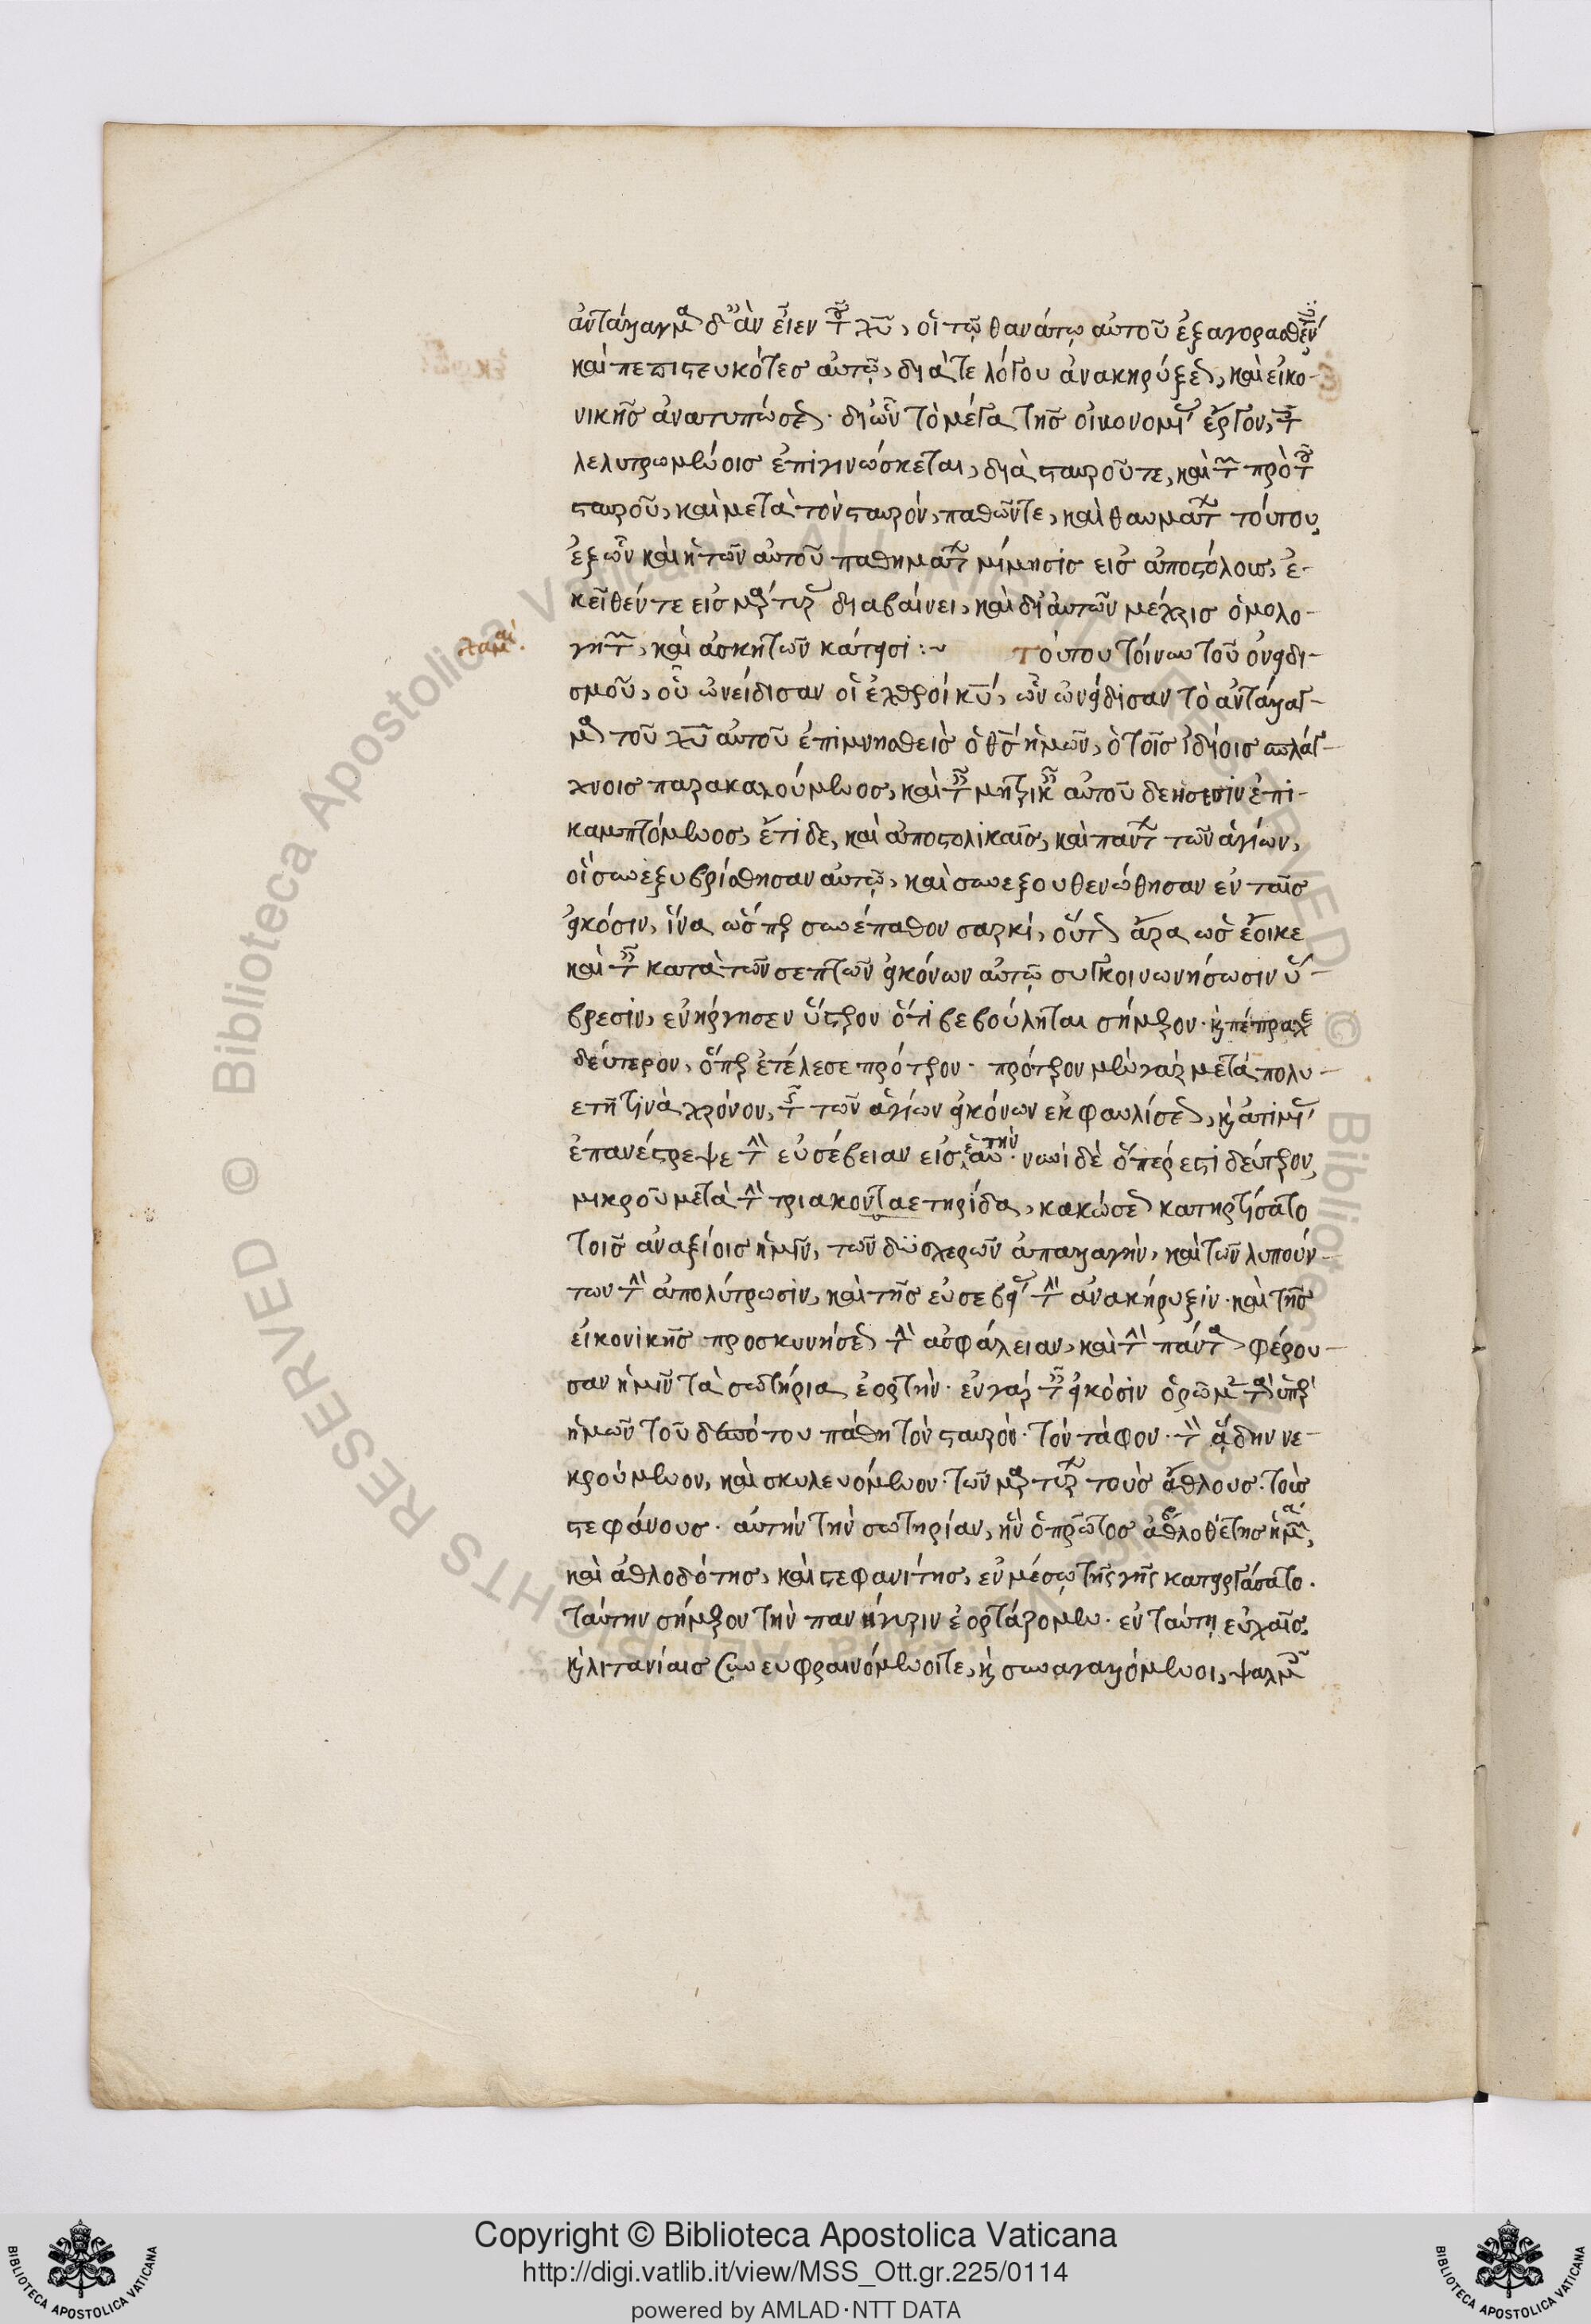 ἀντάλλαγμα δ' ἂν εἶεν τοῦ χυ, οἱ τῷ θανάτῳ αὐτοῦ ἐξαγορασθέντες
καὶ πεπιστευκότες αὐτῷ, διά τε λόγου ἀνακηρύξεως, καὶ εἰκο-
νικῆς ἀνατυπώσεως· δι' ὧν τὸ μέγα τῆς οἰκονομίας ἔργον, τοῖς
λελυτρωμένοις ἐπιγινώσκεται, διὰ σταυροῦ τε, καὶ τῶν πρὸ τοῦ
σταυροῦ, καὶ μετὰ τὸν σταυρόν, παθῶν τε, καὶ θαυμάτων τούτου,
ἐξ ὧν καὶ ἡ τῶν αὐτοῦ παθημάτων μίμησις εἰς ἀποστόλους, ἐ-
κεῖθέν τε εἰς μάρτυρας διαβαίνει, καὶ δι' αὐτῶν μέχρις ὁμολο-
γητῶν, καὶ ἀσκητῶν κάτεισι :~ Τούτου τοίνυν τοῦ ὀνειδι-
σμοῦ, οὗ ὠνείδισαν οἱ ἐχθροί κυ, ὧν ὠνείδισαν τὸ ἀντάλλαγ-
μα τοῦ χυ αὐτοῦ ἐπιμνησθεὶς ὁ θς ἡμῶν, ὁ τοῖς ἰδίοις σπλάγ-
χνοις παρακαλούμενος, καὶ ταῖς μητρικαῖς αὐτοῦ δεήσεσιν ἐπι-
καμπτόμενος, ἔτι δε, καὶ ἀποστολικαῖς, καὶ πάντων τῶν ἁγίων,
οἳ συνεξυβρίσθησαν αὐτῷ, καὶ συνεξουθενώθησαν ἐν ταῖς
εἰκόσιν, ἵνα ὥσπερ συνέπαθον σαρκί, οὕτως ἄρα ὡς ἔοικε
καὶ ταῖς κατὰ τῶν σεπτῶν εἰκόνων αὐτῷ συγκοινωνήσωσιν ὕ-
βρεσιν, ἐνήργησεν ὕστερον ὅτι βεβούληται σήμερον· καὶ πέπραχε
δεύτερον, ὅπερ ἐτέλεσε πρότερον· πρότερον μὲν γὰρ μετὰ πολυ-
ετῆ τινὰ χρόνον, τῆς τῶν ἁγίων εἰκόνων ἐκφαυλίσεως, καὶ ἀτιμίας
ἐπανέστρεψε τὴν εὐσέβειαν εἰς ἑαυτήν· νυνὶ δὲ ὅπερ ἐστὶ δεύτερον,
μικροῦ μετὰ τὴν τριακονταετηρίδα, κακώσεως κατηρτίσατο
τοῖς ἀναξίοις ἡμῖν, τῶν δυσχερῶν ἀπαλλαγὴν, καὶ τῶν λυπούν-
των τὴν ἀπολύτρωσιν, καὶ τῆς εὐσεβείας τὴν ἀνακήρυξιν· καὶ τῆς
εἰκονικῆς προσκυνήσεως τὴν ἀσφάλειαν, καὶ τὴν πάντα φέρου-
σαν ἡμῖν τὰ σωτήρια, ἑορτήν· ἐν γὰρ ταῖς εἰκόσιν ὁρῶμεν τὰ ὑπὲρ
ἡμῶν τοῦ δεσπότου πάθη τὸν σταυρόν· τὸν τάφον· τὸν ᾅδην νε-
κρούμενον, καὶ σκυλευόμενον· τῶν μαρτύρων τοὺς ἄθλους· τοὺς
στεφάνους· αὐτὴν τὴν σωτηρίαν, ἣν ὁ πρῶτος ἀθλοθέτης ἡμῶν,
καὶ ἀθλοδότης, καὶ στεφανίτης, ἐν μέσῳ τῆς γῆς κατειργάσατο.
ταύτην σήμερον τὴν πανήγυριν ἑορτάζομεν· ἐν ταύτῃ εὐχαῖς,
καὶ λιτανίαις συνευφραινόμενοί τε, καὶ συναγαλλόμενοι, ψαλμοῖς